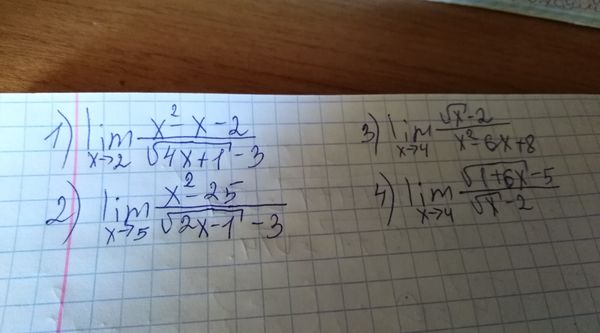 1) lim x→2 (x² - x - 2)/(√(4x+1) - 3)
2) lim x→5 (x² - 25)/(√(2x-1) - 3)
3) lim x→4 (√x - 2)/(x² - 6x + 8)
4) lim x→4 (√(1+6x) - 5)/(√x - 2)